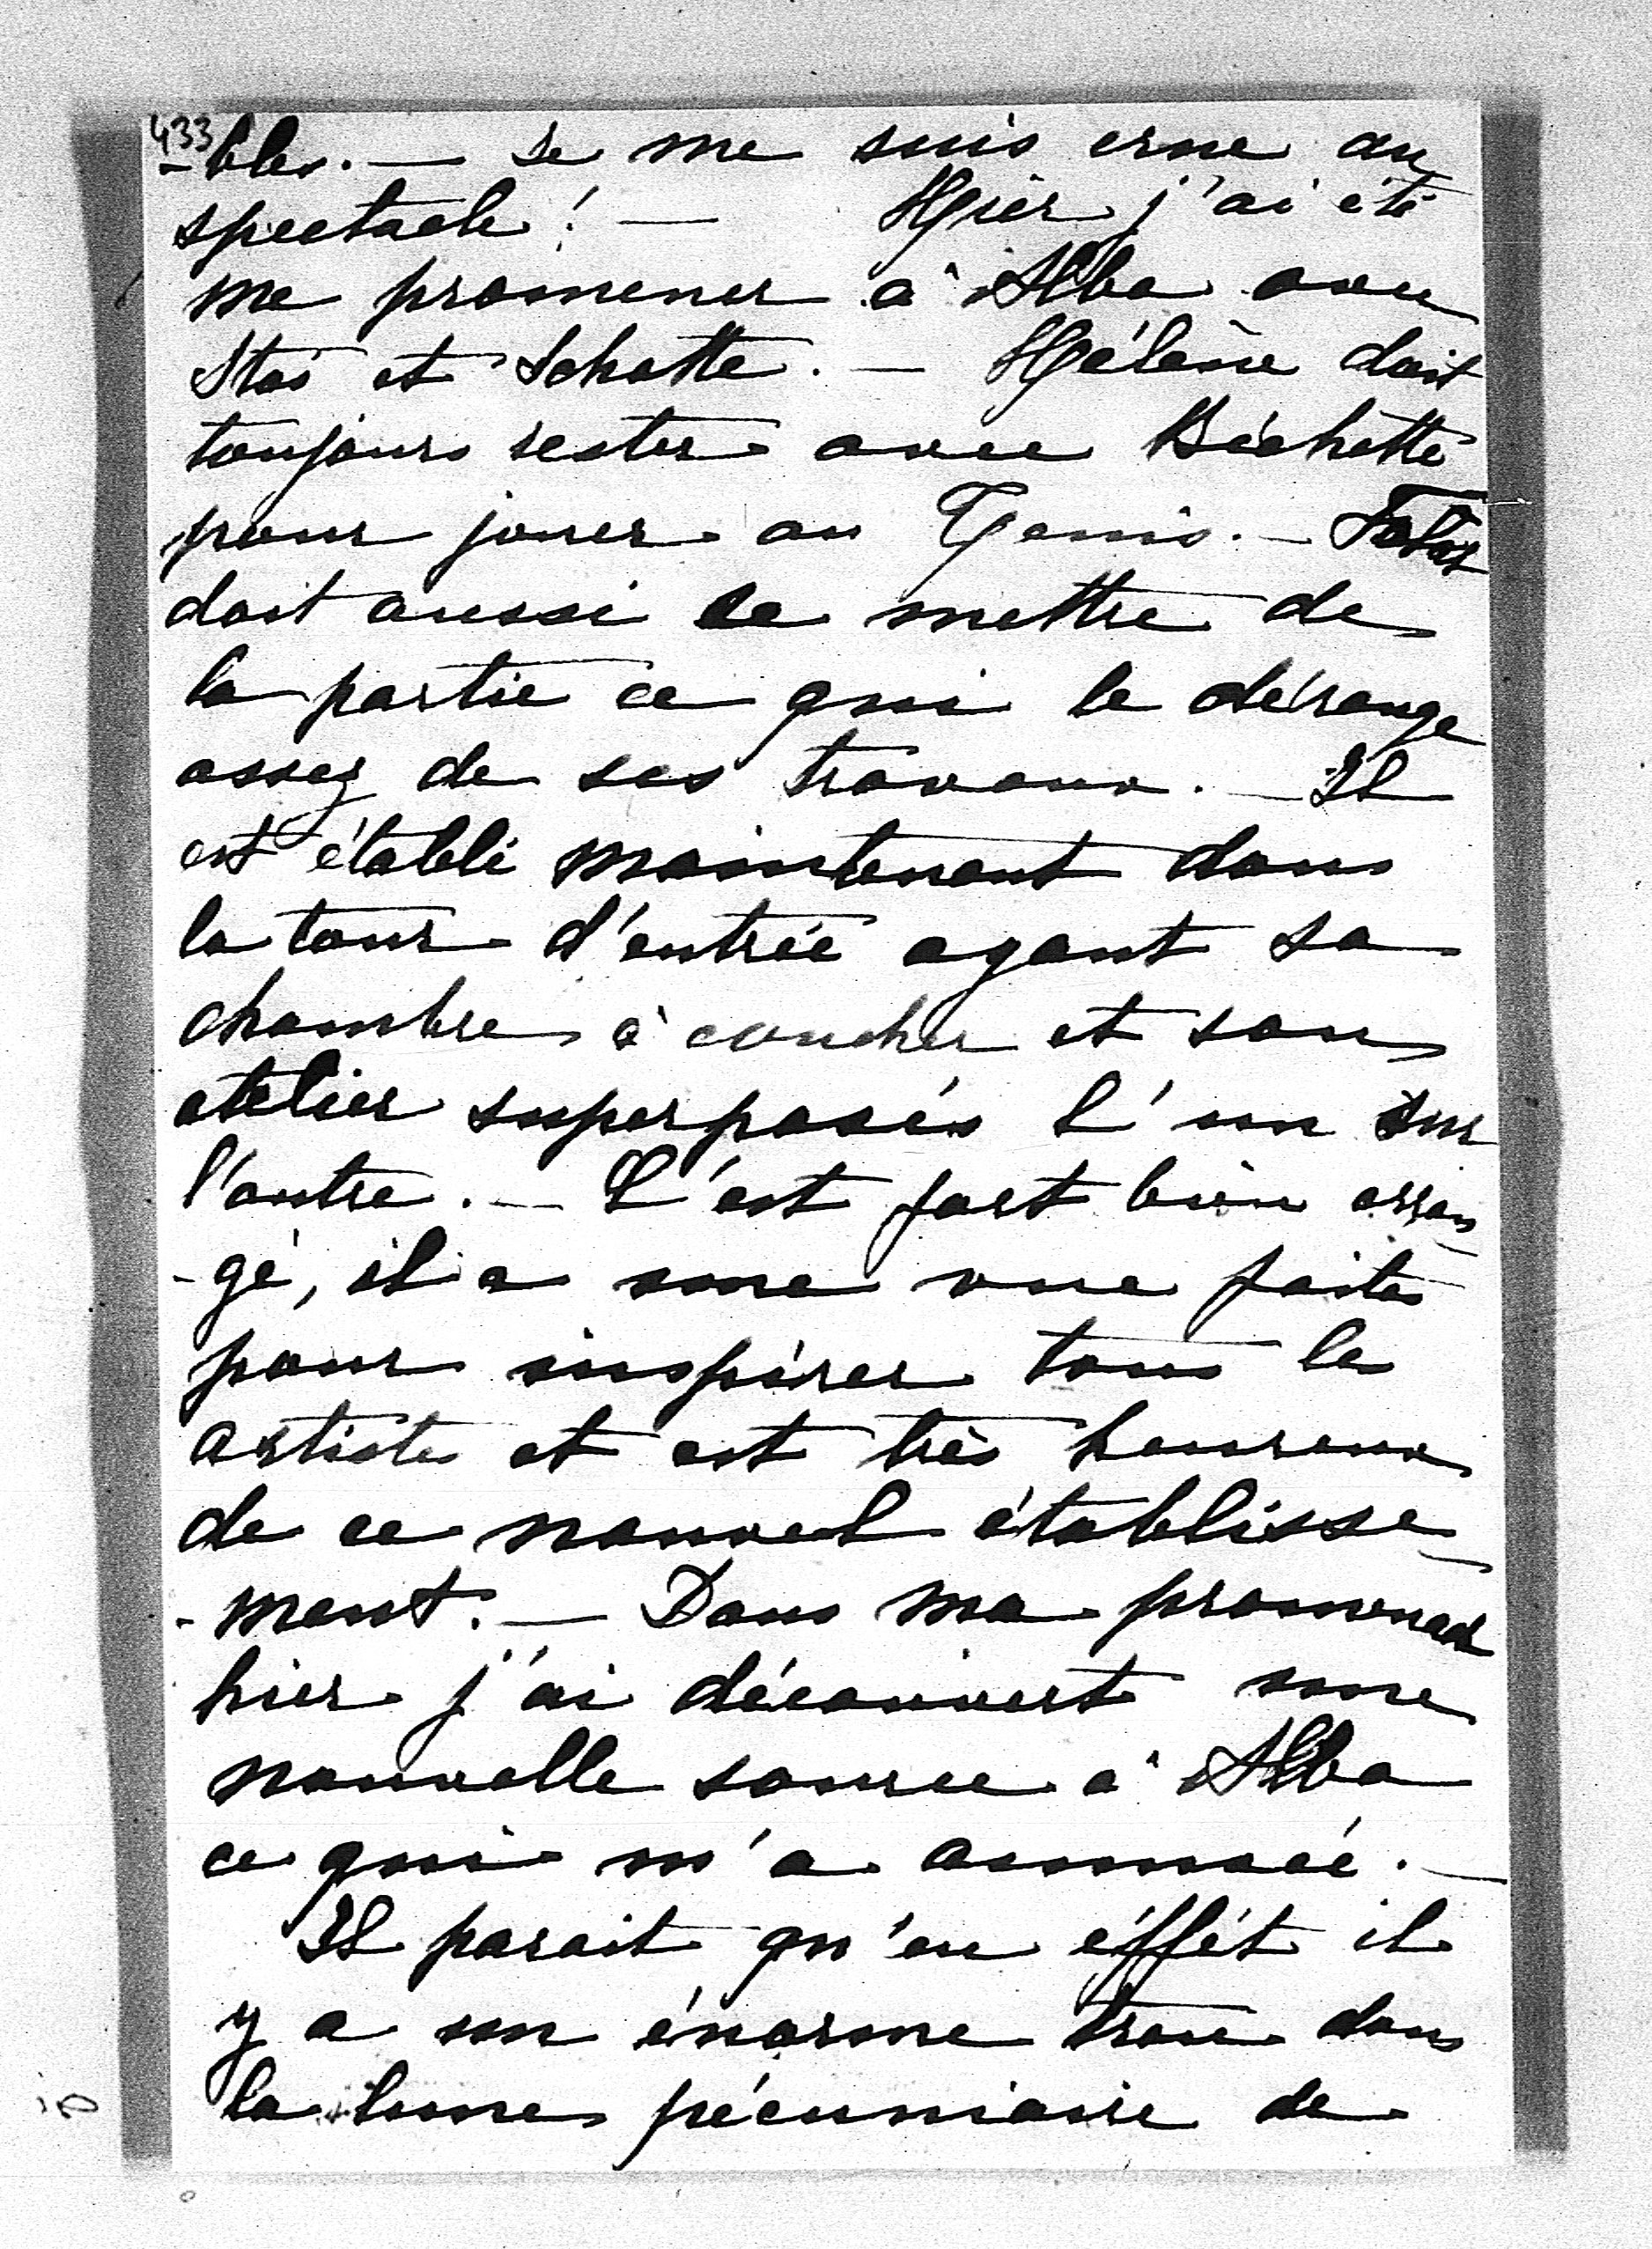 433
-bles. — Je me suis crue au
spectacle! — Hier j'ai été
me promener à Alba avec
Stas et Schotte. — Hélène doit
toujours rester avec Béchette
pour jouer au Tennis. —
doit aussi se mettre de
la partie ce qui le dérange
assez de ses travaux. — Il
est établi maintenant dans
la tour d'entrée ayant sa
chambre à coucher et son
atelier superposés l'un sur
l'autre. — C'est fort bien arran
-gé, il a une vue faite
pour inspirer tous les
artistes et est très heureux
de ce nouvel établisse-
-ment. — Dans ma promenade
hier j'ai découvert une
nouvelle source à Alba
ce qui m'a amusée. —
Il parait qu'en éffét il
y a un énorme trou dans
la lune pécuniaire de